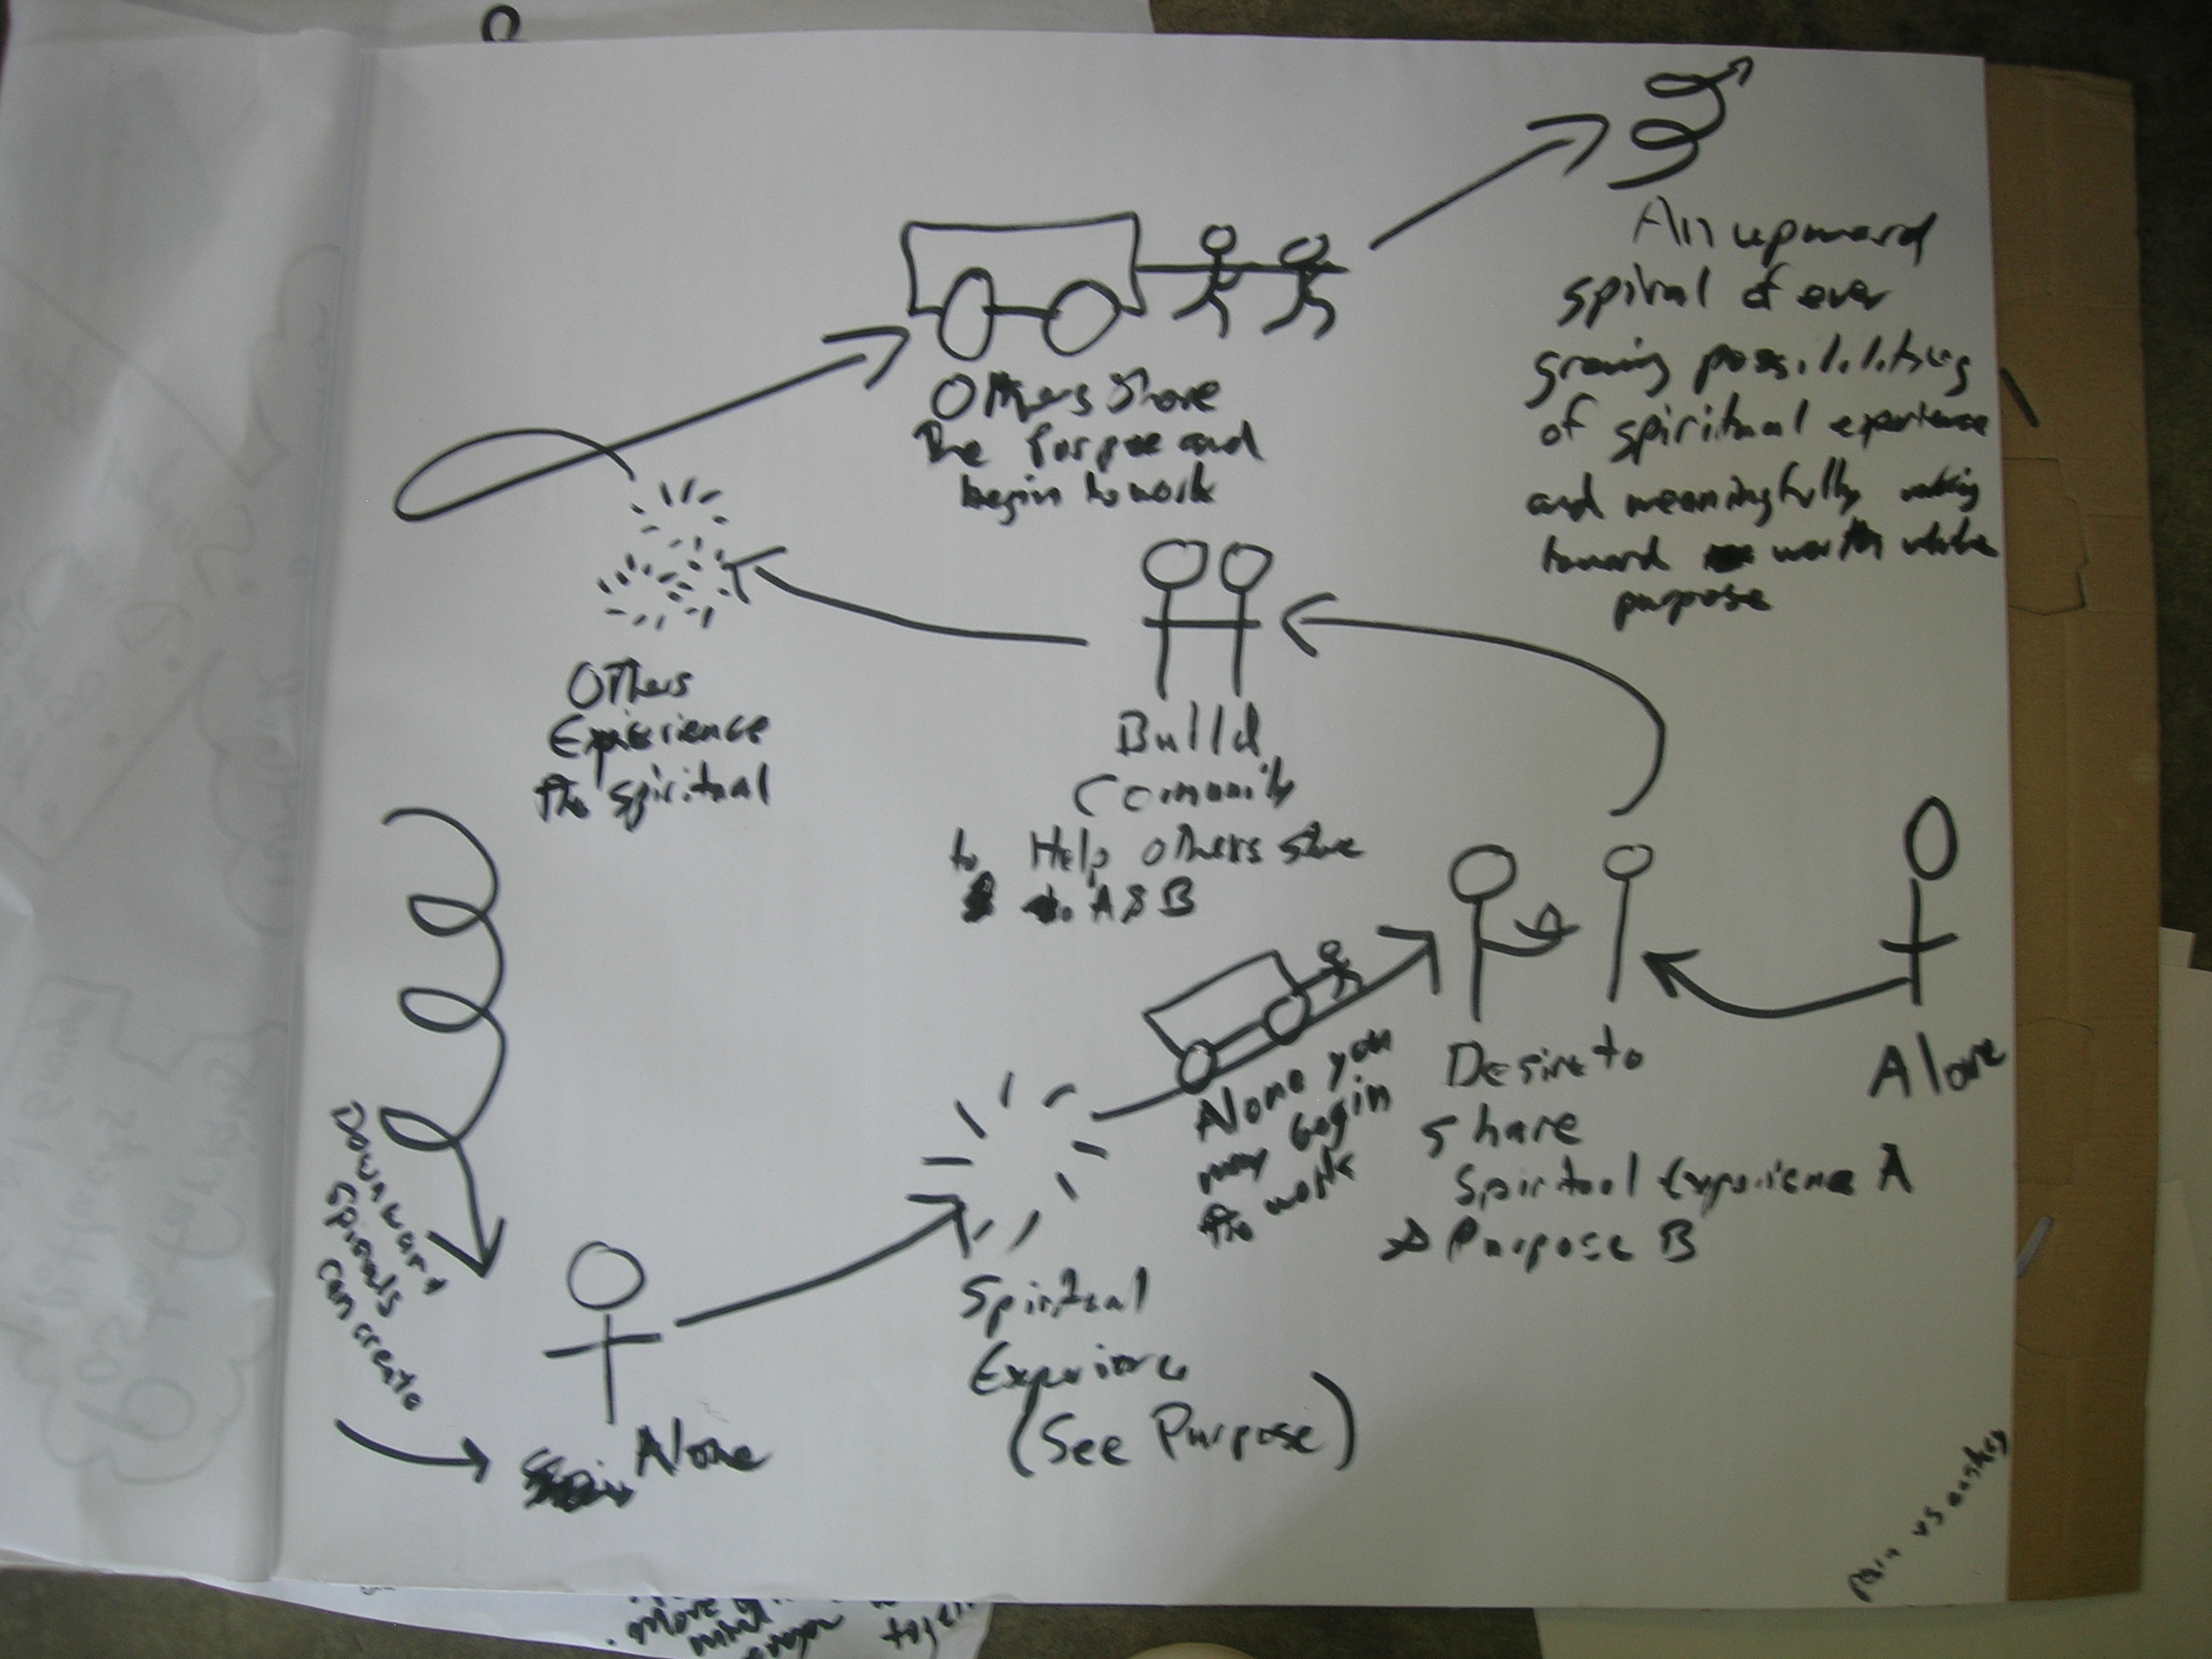 An upward
spiral of ever
growing possibilities
of spiritual experience
and meaningfully
toward worth while
purpose
Others Share
The Purpose and
begin to work
Others
Expierience
the spiritual
Build
Comunity
to Help others share
to A & B
Alone you
may begin
to work
Desire to
share
Spiritual Experience A
Purpose B
Alone
Downward
Spirals
Can create
Alone
Spiritual
Experience
(See Purpose)
Pain vs
more
mind
together